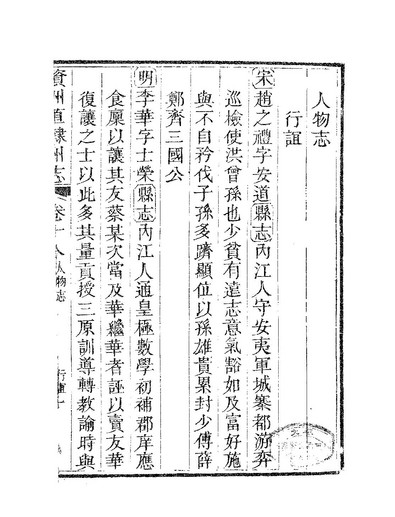 人物志
行誼
宋趙之禮字安道縣志內江人守安夷軍城寨都游奕
巡檢使洪曾孫也少貧有遠志意氣豁如及富好施
與不自矜伐子孫多躋顯位以孫雄貴累封少傅薛
鄭齊三國公
明李華字士榮縣志內江人通皇極數學初補郡庠應
食廩以讓其友蔡某次當及華繼華者誣以賣友華
復讓之士以此多其量貢授三原訓導轉教諭時與
資州直隸州志 卷十八人物志 行誼一